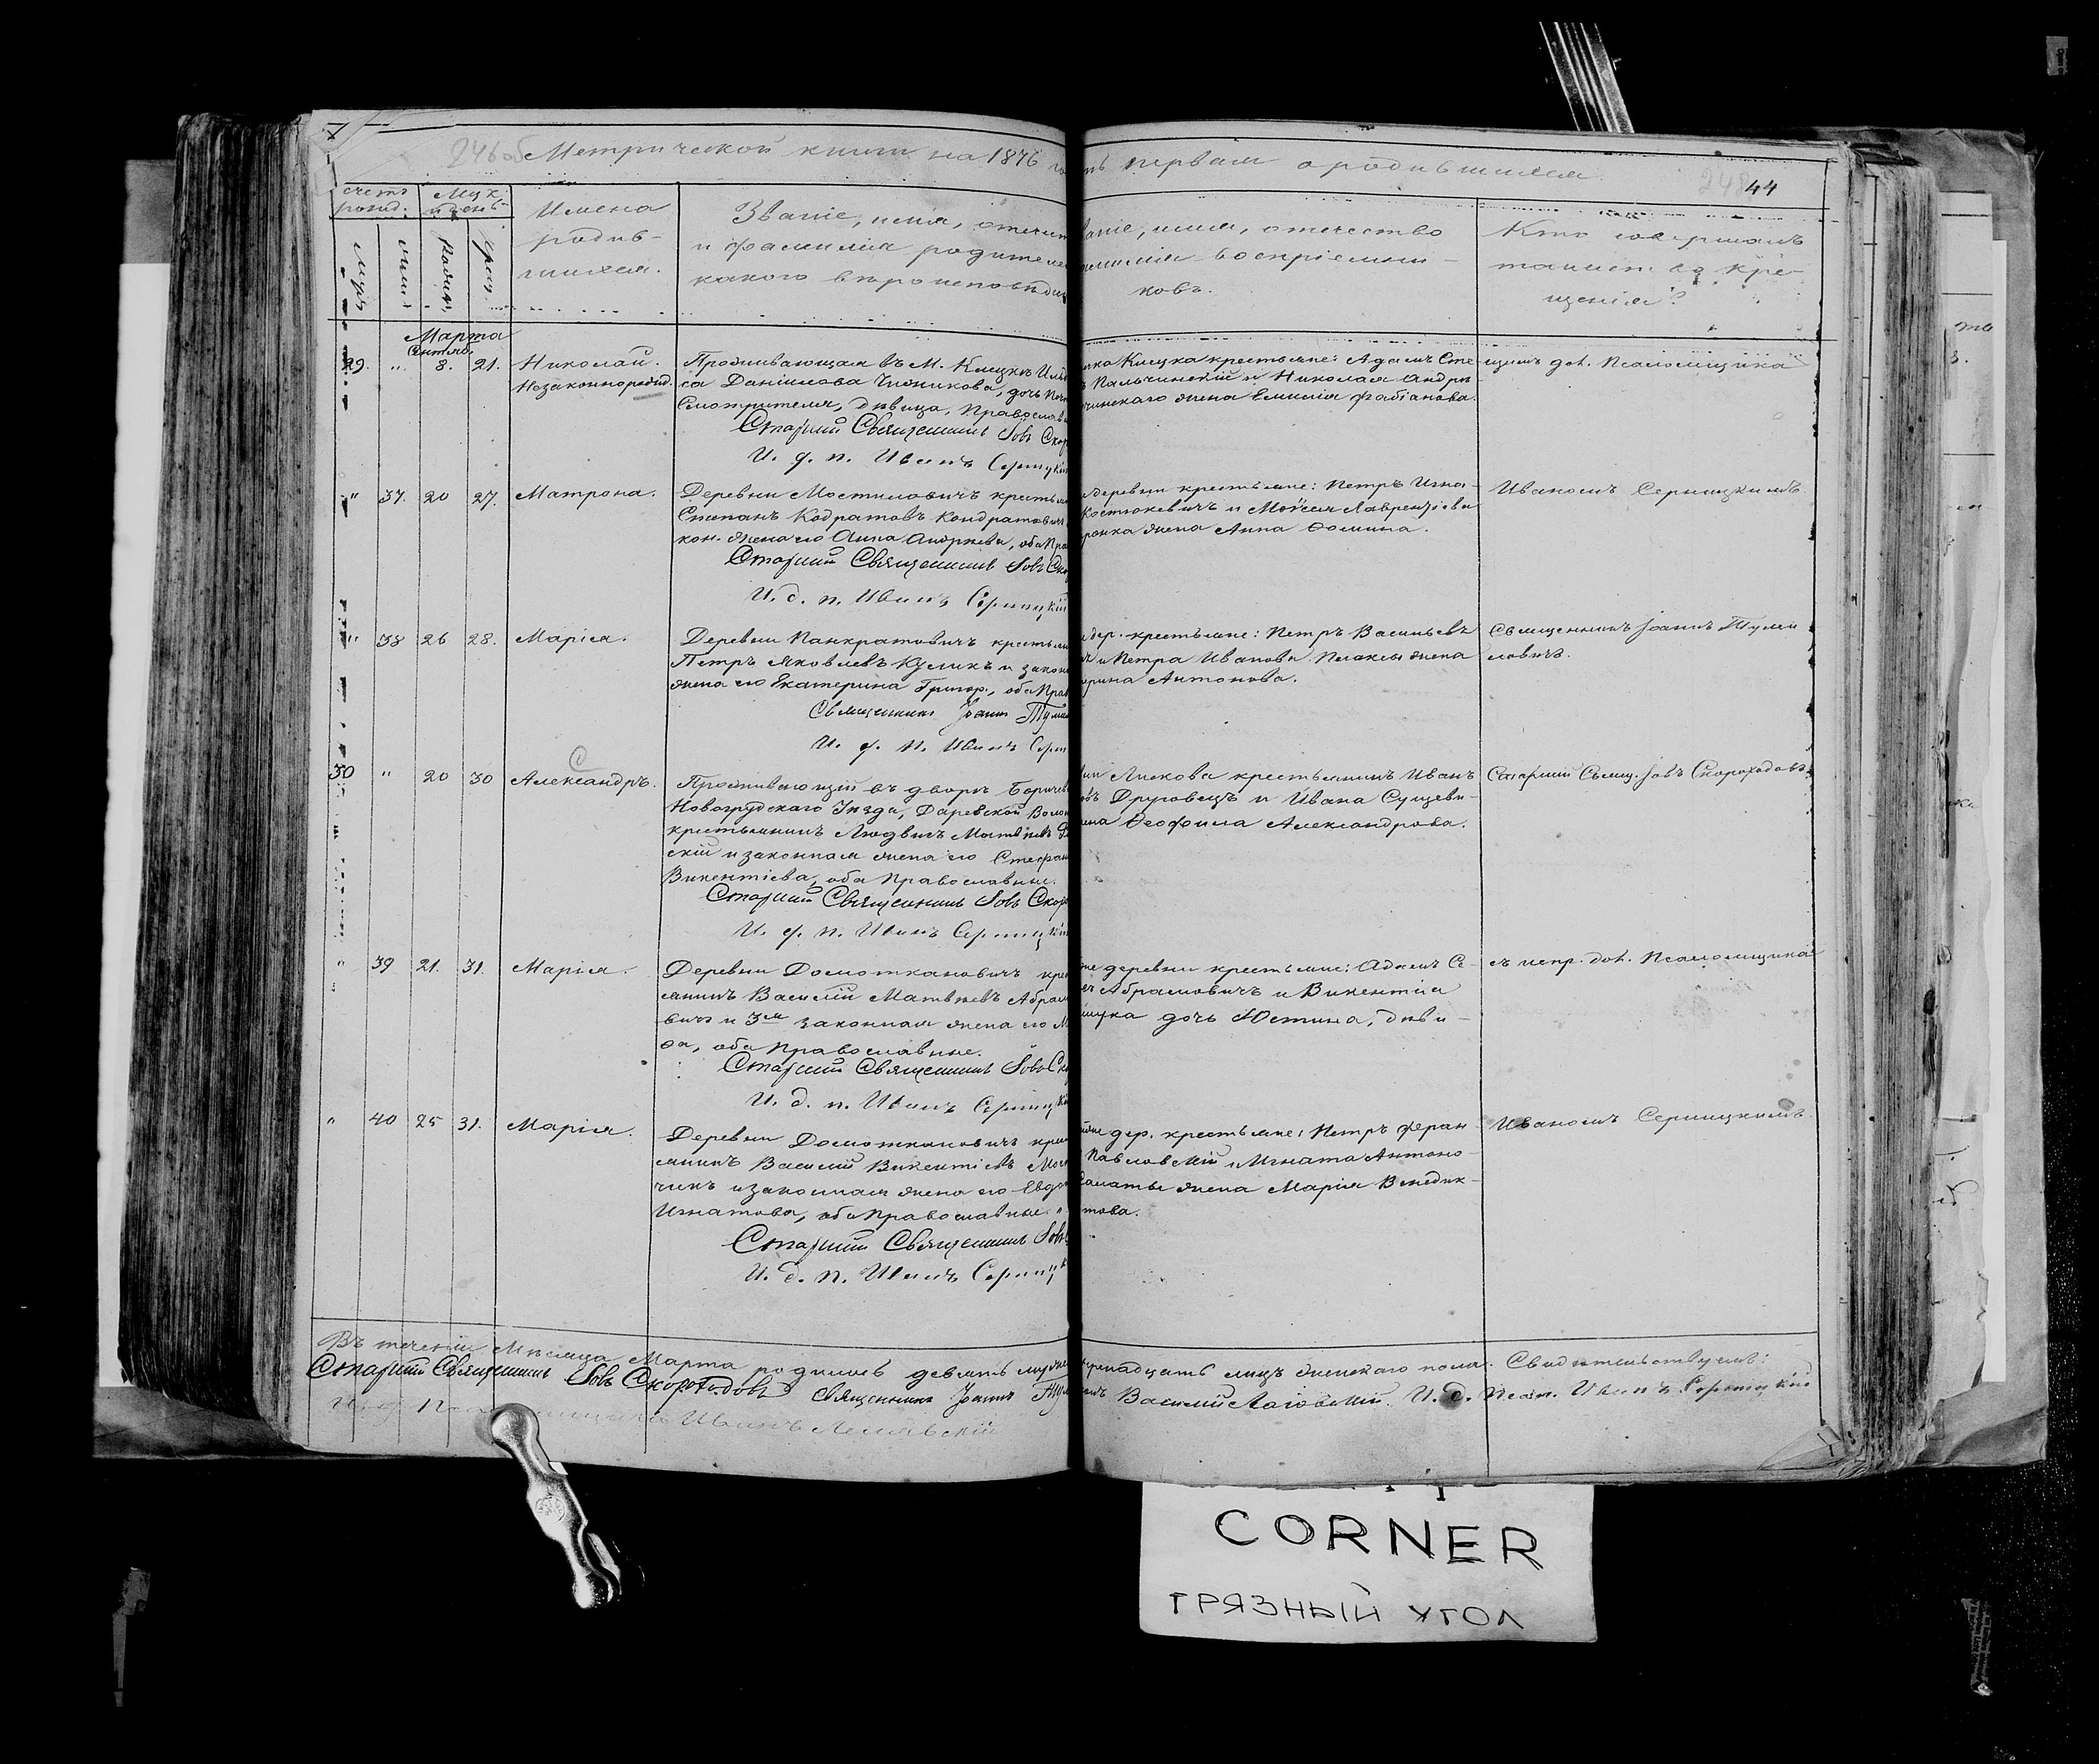 246об Метрической книги на 1876 го
ть первая о родившихся.
248 44
счетъ родив.
Муж.
Женс.
Мѣс. и день
Рожд.
Крещ.
Имена родив-
шихся.
Званіе, имя, отечест
и фамилія родителе
какого вѣроисповѣдан
ваніе, имя, отечество
амилія воспріемни-
ковъ.
Кто совершалъ
таинство кре-
щенія?
Марта
29. " 8. 21.
Николай.
Незаконнорожд.
Проживающая въ М. Клецкѣ
са Даніилова Чижикова, дочь
Смотрителя, дѣвица, Православ
Старшій Священникъ Іовъ Скор
И. д. п. Иванъ Серницкій
чка Клецка крестьяне: Адамъ Сте-
ъ Пальчинскій и Николая Андре
чинскаго жена Емилія Фабіанова.
щимъ дол. Псаломщика
" 37. 20 27. Матрона.
Деревни Мостиловичъ крестья
Степанъ Кодратовъ Кондратович
кон. жена его Анна Андреева, оба Пра
Старшій Священникъ Іовъ Ско
И. д. п. Иванъ Серницкій
деревни крестьяне: Петръ Игна-
Костюкевичъ и Моѵсея Лаврентіева
ронка жена Анна Ѳомина.
Иваномъ Серницкимъ.
" 38 26 28. Марія.
Деревни Панкратовичъ крестьян
Петръ Яковлевъ Куликъ и закон
жена его Екатерина Григор., оба Прав
Священникъ Іоаннъ
И. д. п. Иванъ Серн
дер. крестьяне: Петръ Васильевъ
и Петра Иванова Плаксы жена
ерина Антонова.
Священникъ Іоаннъ
ловичъ.
30 " 20 30 Александръ.
Проживающій въ дворѣ
Новогрудскаго Уѣзда, Даревской Воло
крестьянинъ Людвигъ Матвѣевъ
скій и законная жена его Стефан
Викентіева, оба Православные.
Старшій Священникъ Іовъ Скор
И. д. п. Иванъ Серницкій
Лискова крестьянинъ Иванъ
овъ Друговецъ и Ивана Сущеви-
ена Ѳеофила Александрова.
Старшій Свящ. Іовъ Скороходовъ
" 39 21. 31. Марія.
Деревни Домоткановичъ кре
янинъ Василій Матвѣевъ Абрам
вичъ и 3я законная жена его М
ѳа, оба Православные.
Старшій Священникъ Іовъ Ск
И. д. п. Иванъ Серницкі
же деревни крестьяне: Адамъ Се-
въ Абрамовичъ и Викентія
щука дочь Юстина, дѣви-
съ испр. дол. Псаломщика
" 40 25 31. Марія.
Деревни Домоткановичъ крес
янинъ Василій Викентіевъ
чикъ и законная жена его Евдо
Игнатова, оба Православные.
Старшій Священникъ Іовъ
И. д. п. Иванъ Серницк
дер. крестьяне: Петръ Феран-
Павловскій и Игната Антоно-
саматы жена Марія Венедик-
това.
Иваномъ Серницкимъ.
Въ теченіи Мѣсяца Марта родилось девять мужес
надцать лицъ женскаго пола. Свидѣтельствуемъ:
Старшій Священникъ Іовъ Скороходовъ Священникъ Іоаннъ
Василій Лаговскій. И. д. Псал. Иванъ Серницкій
И. д. Псаломщика Иванъ
CORNER
ГРЯЗНЫЙ УГОЛ